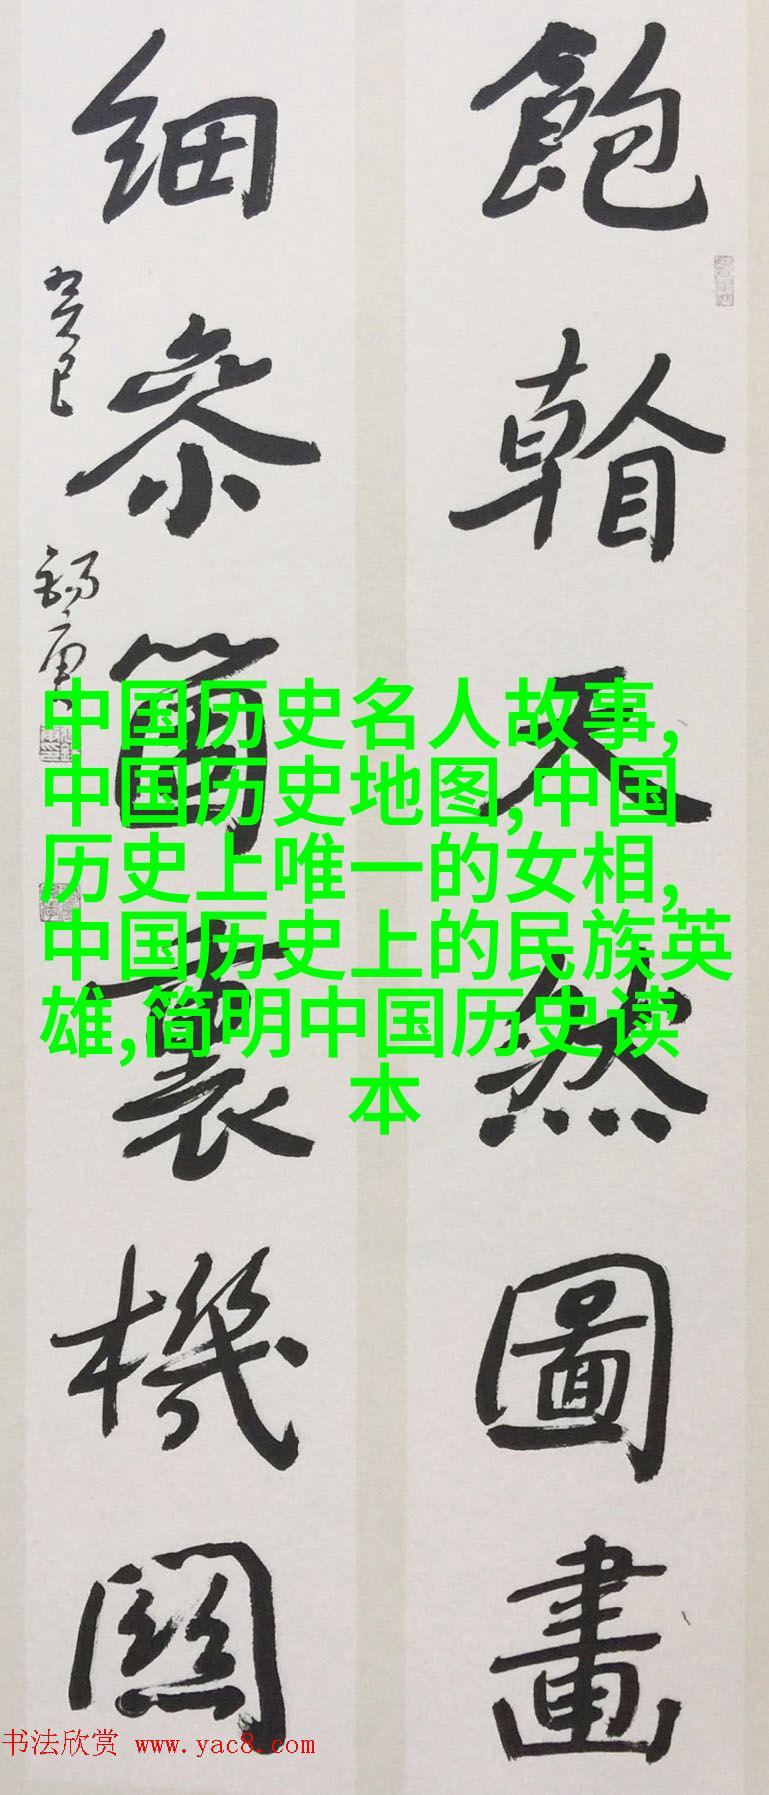 飽看天然圖畫
細參箇裏機關
癸巳
中国历史名人故事,
中国历史地图,中国
历史上唯一的女相,
中国历史上的民族英
雄,简明中国历史读
本
书法欣赏 www.yac8.com